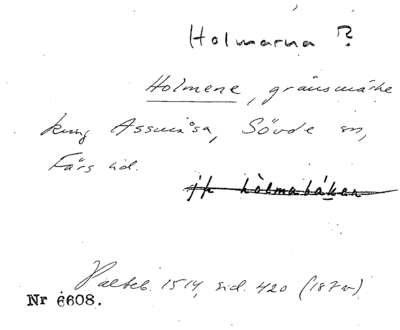 Holmarna ?
Holmene, gränsmärke
kring Assmåsa, Sövde sn,
Färs hd.
jfr holmabåkan
Palteb. 1514, sid. 420 (187v)
Nr 6608.